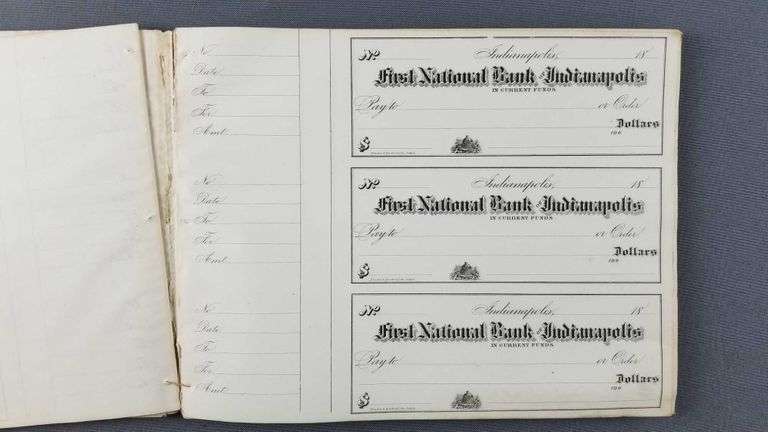 No
Date
To
For
Amt
No Indianapolis, 18
First National Bank of Indianapolis
IN CURRENT FUNDS
Pay to or Order
Dollars
100
$
No
Date
To
For
Amt
No Indianapolis, 18
First National Bank of Indianapolis
IN CURRENT FUNDS
Pay to or Order
Dollars
100
$
No
Date
To
For
Amt
No Indianapolis, 18
First National Bank of Indianapolis
IN CURRENT FUNDS
Pay to or Order
Dollars
100
$